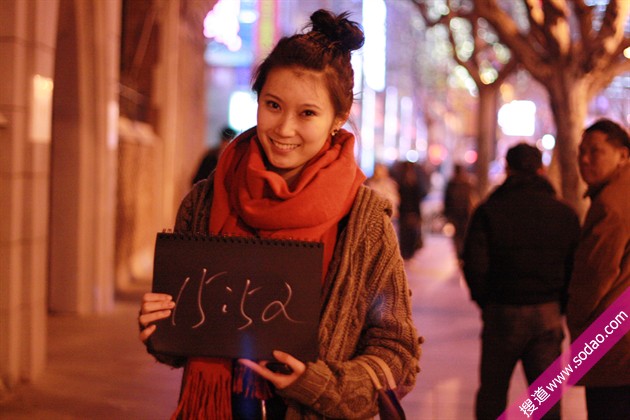 15:52
搜道 www.sodao.com